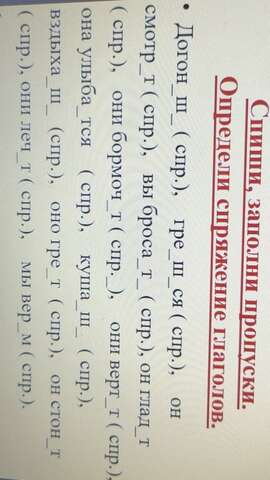 Спиши, заполни пропуски.
Определи спряжение глаголов.
• Догон_ш_ ( спр.), гре_ш_ся ( спр.), он
смотр_т ( спр.), вы броса_т_ ( спр.), он глад_т
( спр.), они бормоч_т ( спр._), они верт_т ( спр.),
она улыба_тся ( спр.), куша_ш_ ( спр.),
вздыха_ш_ (спр.), оно гре_т ( спр.), он стон_т
( спр.), они леч_т ( спр.), мы вер_м ( спр.).